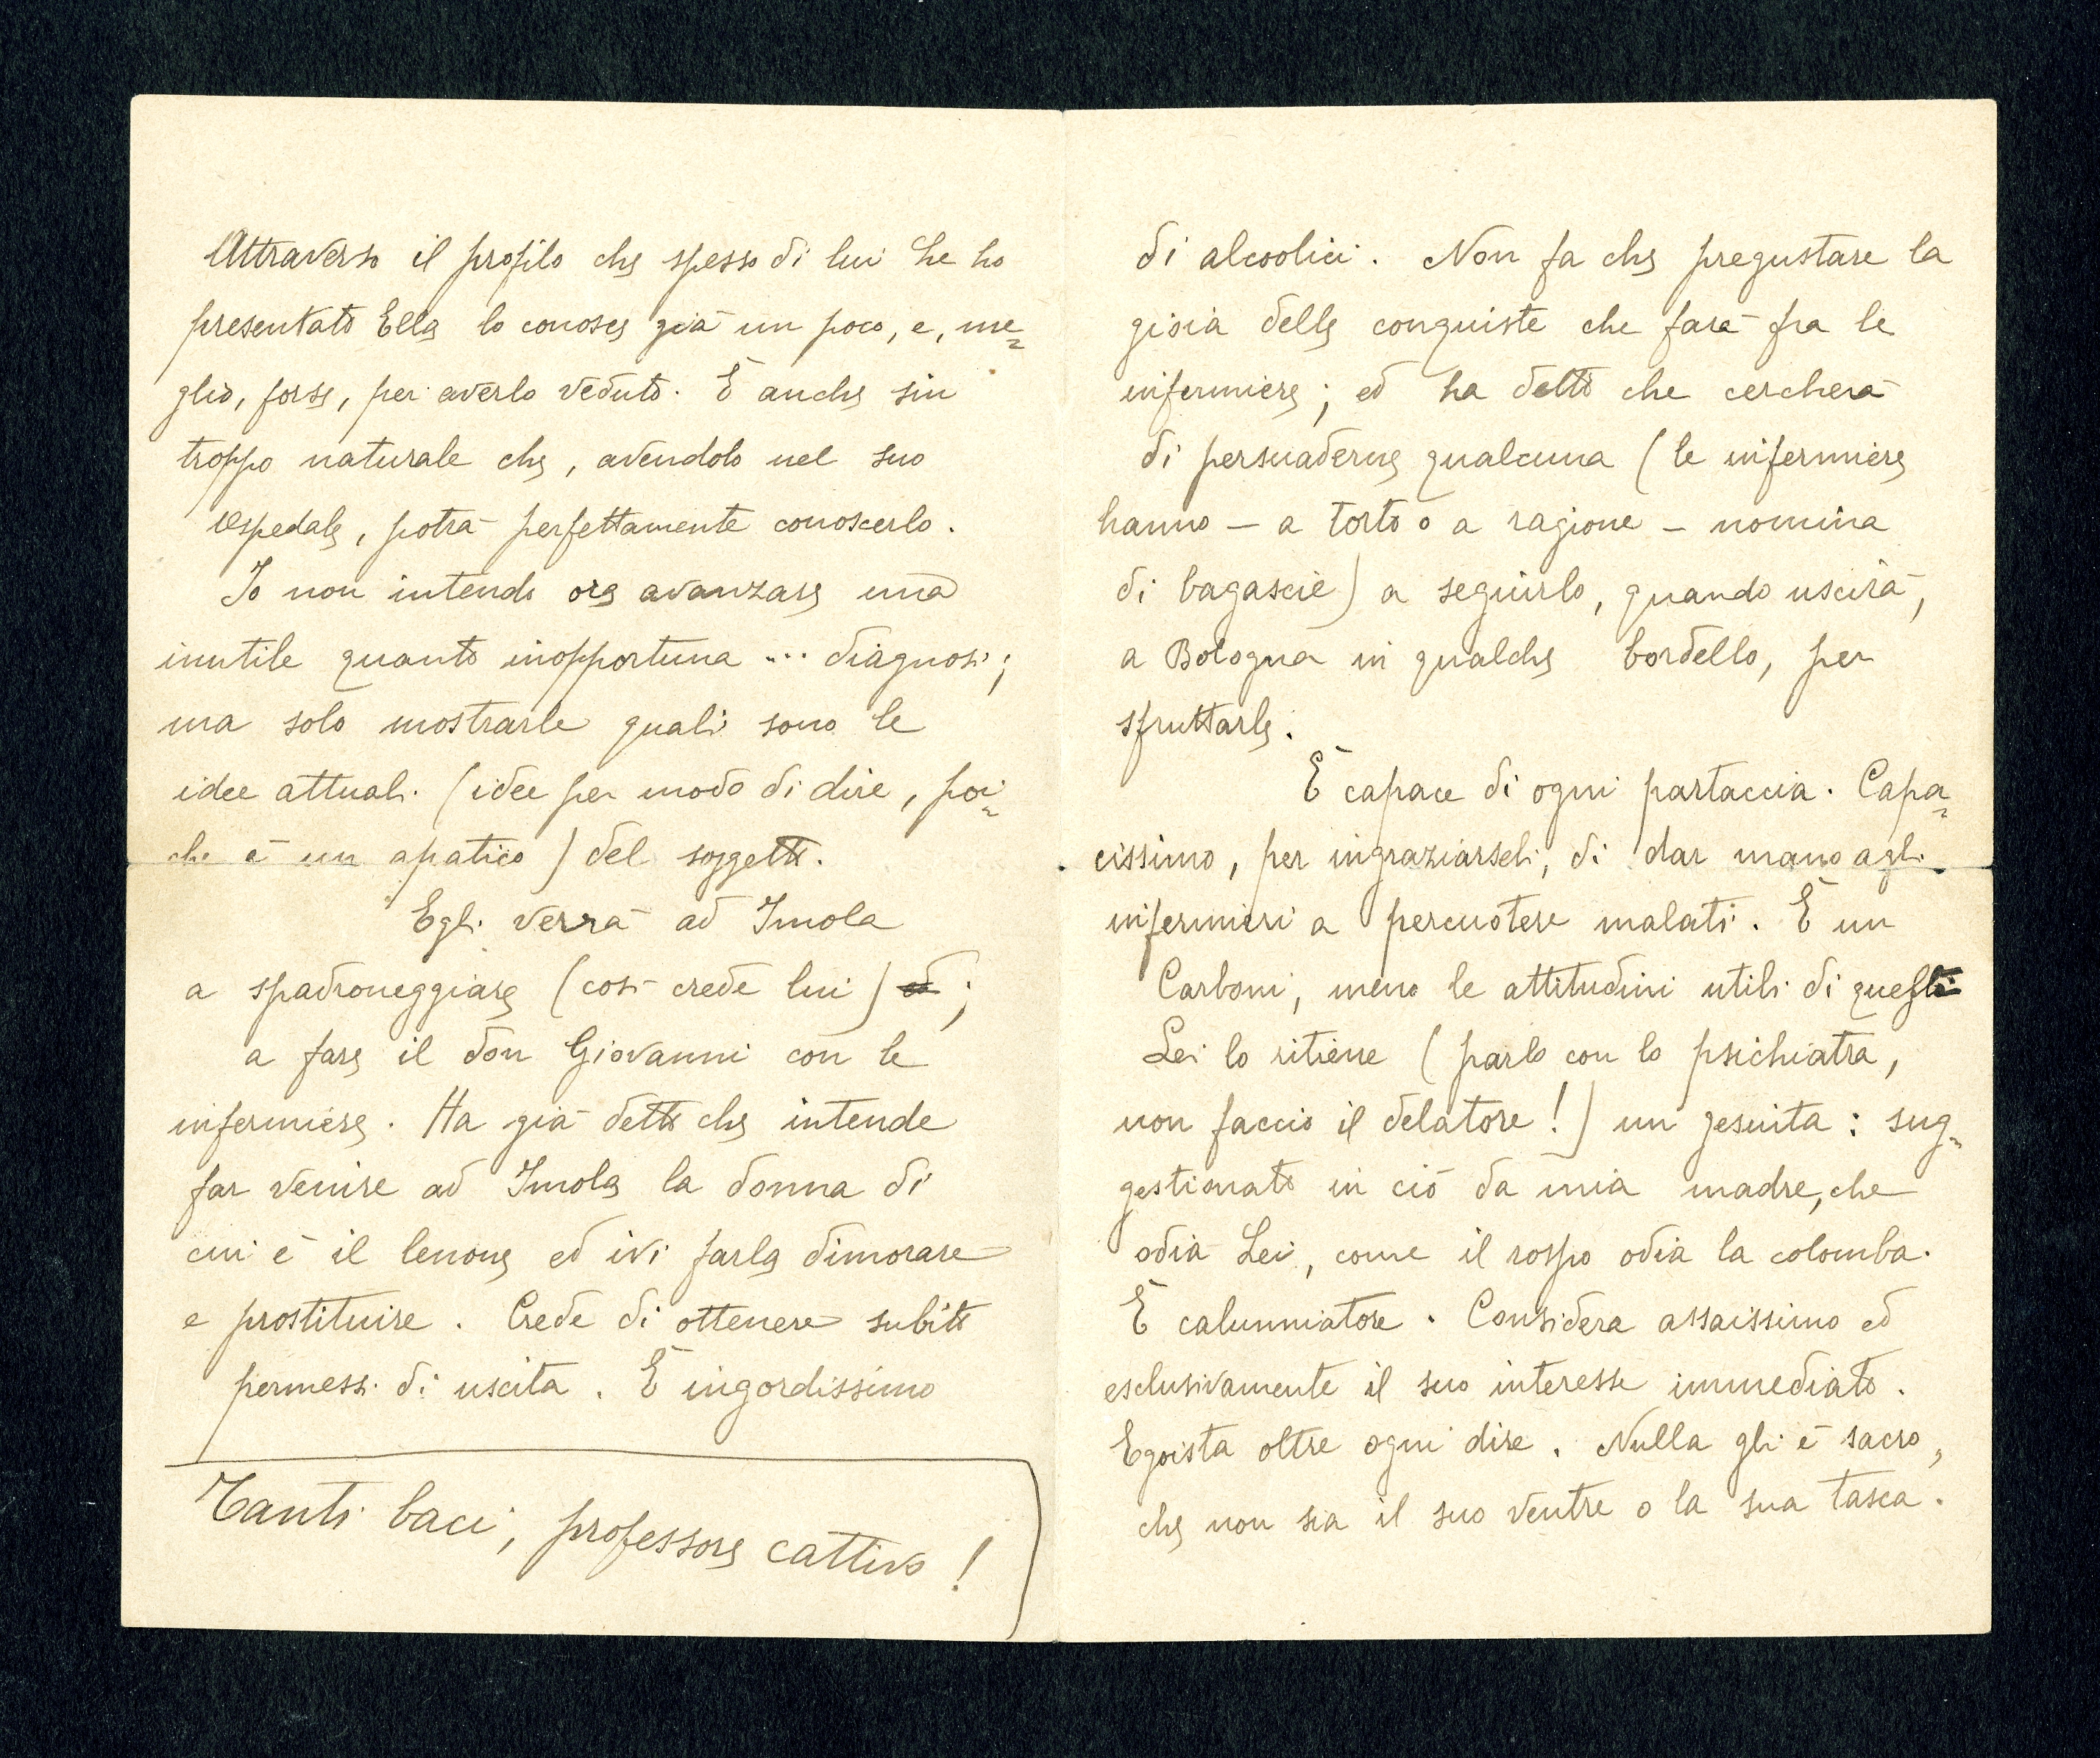 Attraverso il profilo che spesso di lui Le ho
presentato Ella lo conosce già un poco, e, me=
glio, forse, per averlo veduto. È anche sin
troppo naturale che, avendolo nel suo
Ospedale, potrà perfettamente conoscerlo.
Io non intendo ora avanzare una
inutile quanto inopportuna ... diagnosi;
ma solo mostrarle quali sono le
idee attuali (idee per modo di dire, poi=
chè è un apatico) del soggetto.
Egli verrà ad Imola
a spadroneggiare (così crede lui) ed ;
a fare il don Giovanni con le
infermiere. Ha già detto che intende
far venire ad Imola la donna di
cui è il lenone ed ivi farla dimorare
e prostituire. Crede di ottenere subito
permessi di uscita. È ingordissimo
Tanti baci, professore cattivo!
di alcoolici. Non fa che pregustare la
gioia delle conquiste che farà fra le
infermiere; ed ha detto che cercherà
di persuaderne qualcuna (le infermiere
hanno – a torto o a ragione – nomina
di bagascie) a seguirlo, quando uscirà,
a Bologna in qualche bordello, per
sfruttarle.
È capace di ogni partaccia. Capa=
cissimo, per ingraziarseli, di dar mano agli
infermieri a percuotere malati. È un
Carboni, meno le attitudini utili di questi
Lei lo ritiene (parlo con lo psichiatra,
non faccio il delatore!) un gesuita: sug=
gestionato in ciò da mia madre, che
odia Lei, come il rospo odia la colomba.
È calunniatore. Considera assaissimo ed
esclusivamente il suo interesse immediato.
Egoista oltre ogni dire. Nulla gli è sacro,
che non sia il suo ventre o la sua tasca.